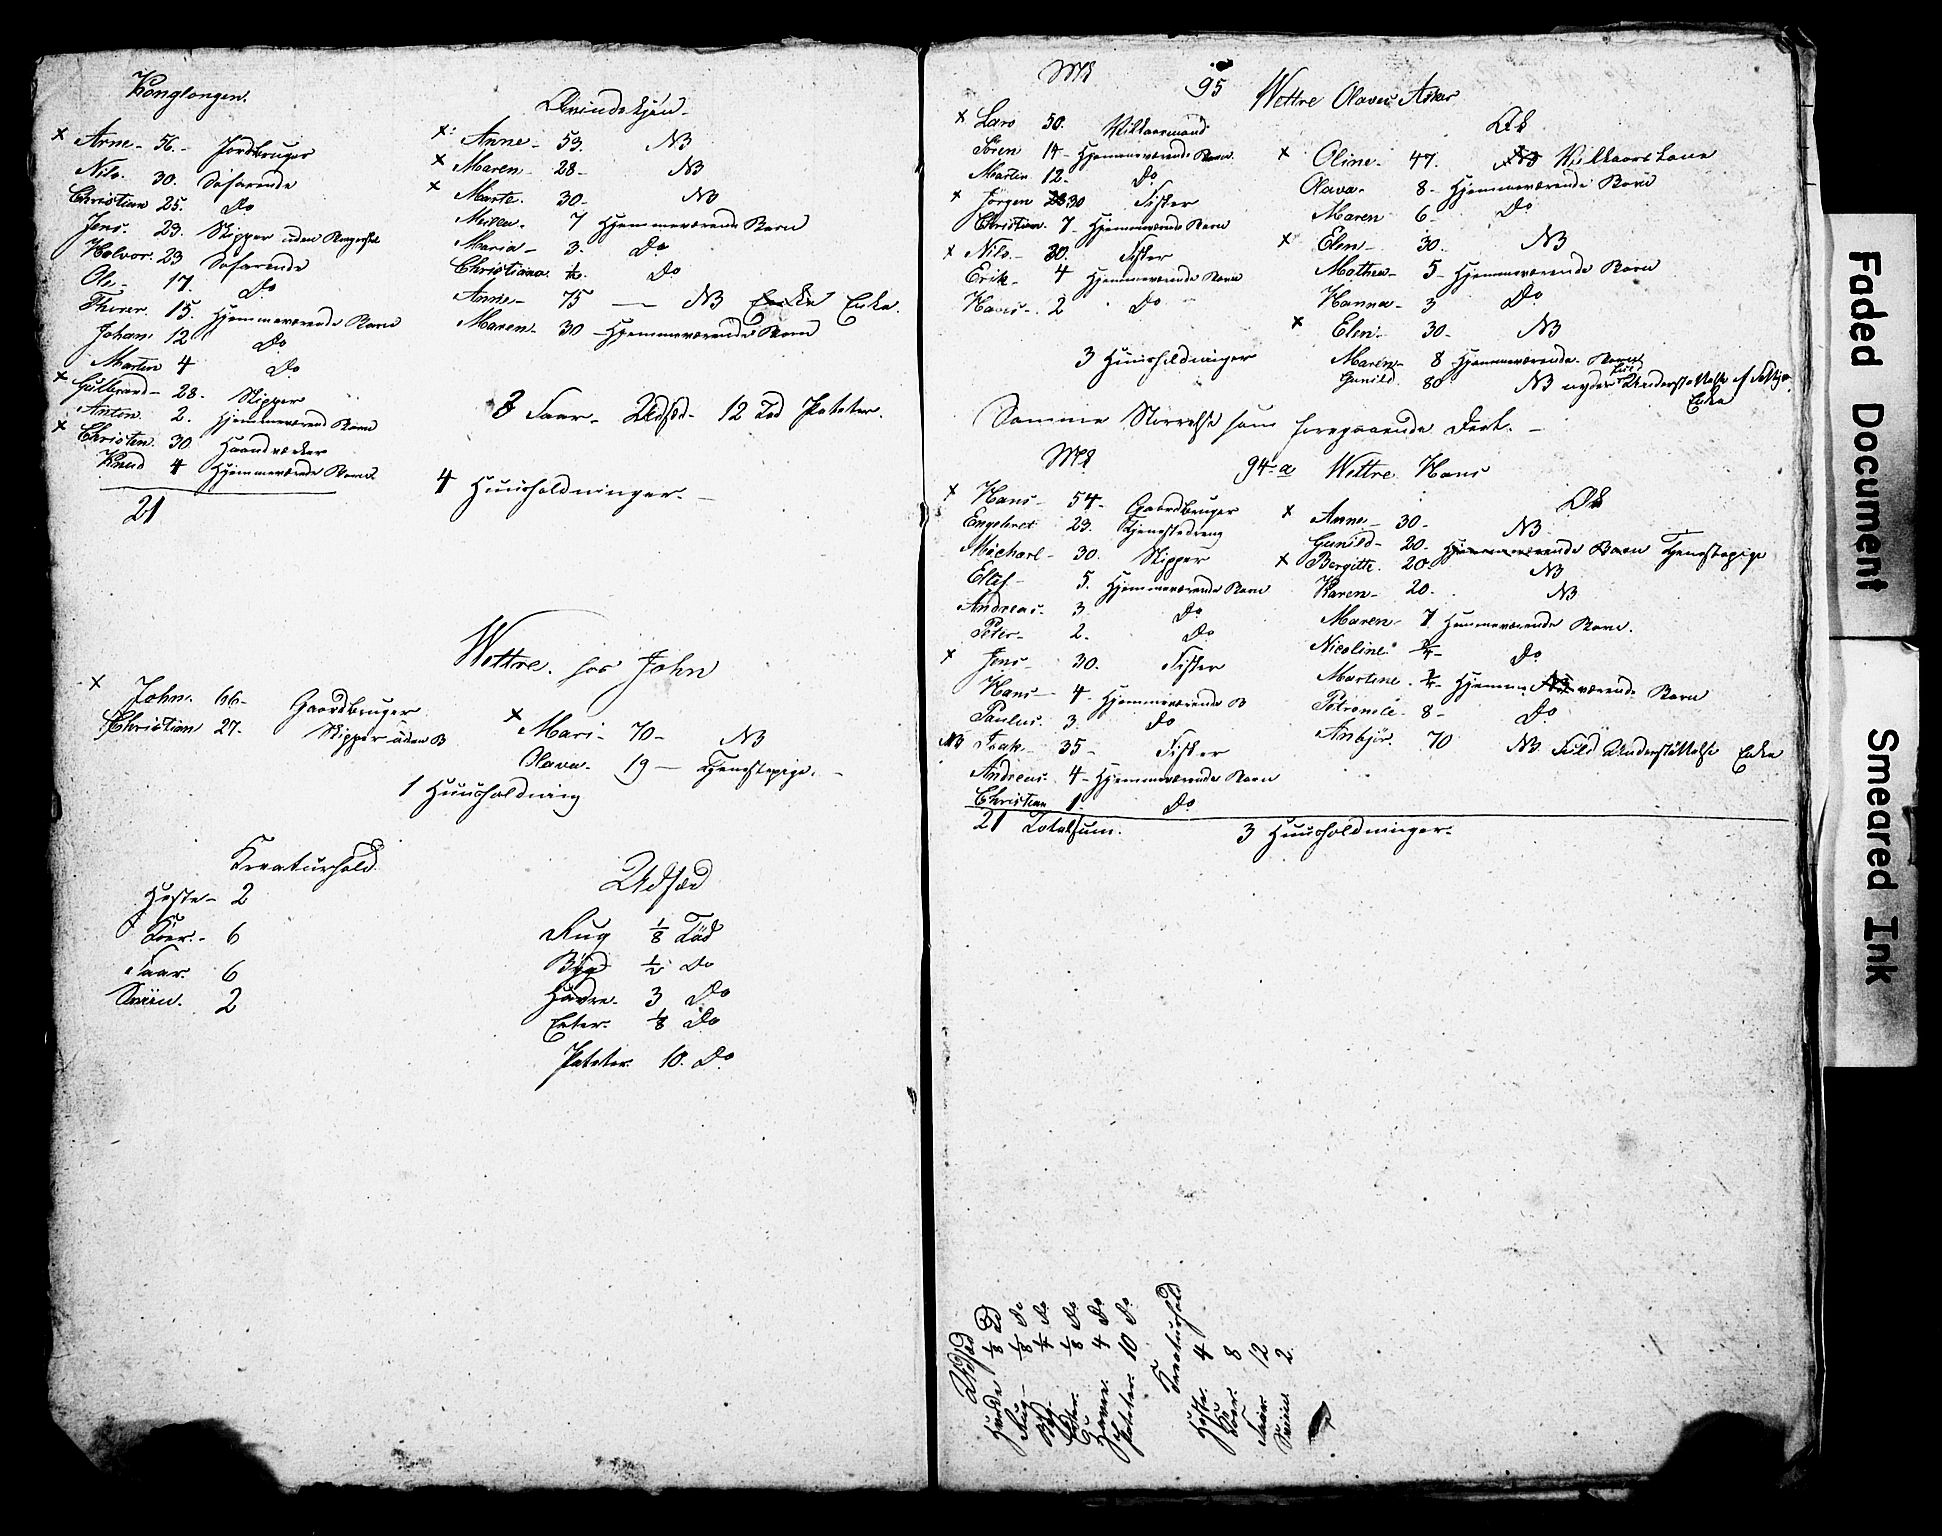 Konglongen.
Arne - 56. - Jordbruger
Nils. 30. Søfarende
Christian 25. Do
Jens. 23. Skipper uden
Halvor. 23 Søfarende
Ole - 17. Do
Therer. 15. Hjemmeværende Barn
Johan. 12 Do
Martin 4 Do
Gulbrand - 28. Skipper
Anton. 2. Hjemmeværend Barn
Christian. 30 Haandværker
Knud 4 Hjemmeværende Barn
21
Qvindekjøn -
Anne - 53. NB
Maren - 28 - NB
Marte. 30 - NB
7 Hjemmeværende Barn
Maria - 3. Do
Christiana. Do
Anne - 75 — NB Enke Enke.
Maren - 30 - Hjemmeværende Barn
Faar - Udsæd - 12 Tød Poteter.
4 Huusholdninger. -
Wettre. hos John
John. 66 - Gaardbruger
Christian 27. Skipper uden B
Mari - 70 - NB
Olava. 19 — Tjenestepige. -
1 Huusholdning
Kreaturhold
Heste - 2
Køer. - 6
Faar. 6
Sviin. 2
Udsæd
Rug 1/8 Tød
Byg 1/2 Do
Havre. 3 Do
Erter. 1/8 Do
Poteter. 10. Do
Mk
95 Wettre Olaves Asker
Lars 50. Vilkaarmand
Sören 14 - Hjemmeværende Barn
Martin 12 - Do
Jörgen 28 30 Fisker
Christian. 7 - Hjemmeværende Barn
Nils - 30. Fisker
Erik - 4 Hjemmeværende Barn
Hans - 2 Do
Qk
Oline. 47. NB Vilkaars Kone
Olava. 8 - Hjemmeværende Barn
Maren 6 - Do
Elen - 30. NB
Mathea - 5 - Hjemmeværende Barn
Hanna - 3 Do
Elen. 30 - NB
Maren - 8 Hjemmeværende Barn
Gunild. 80 NB nyder fuld Understøttelse af
Enke
3 Huusholdninger
Samme Størrelse som foregaaende Deel. -
Mk
94 - a Wettre Hans
Hans - 54 - Gaardbruger
Engebret 23. Tjenestedreng
Michael - 30. Skipper
Ellef - 5. Hjemmeværende Barn
Andreas. 3. Do
Peter - 2. Do
Jens - 30. Fisker
Hans - 4 - Hjemmeværende B
Paulus. 3. Do
NB Isak - 35 - Fisker
Andreas. 4 - Hjemmeværende Barn
Christian 1. Do
21 Totalsum.
Qk
Anne - 30 - NB
Gunild - 20 - Hjemmeværende Barn Tjenestepige
Bergitte. 20. NB
Karen - 20. NB
Maren - 7 Hjemmeværende Barn.
Nicoline. Do
Martine. Hjemmeværende Barn
Petronele. 8 - Do
Anbjör. 70 NB Fuld Understøttelse Enke
3 Huusholdninger.
Udsæd
Hvede 1/8 Td
Rug - 1/8 Do
Byg - Do
Erter. 1/8 Do
Havre. 4 Do
Poteter. 10 Do
Kreaturhold
Heste. 4
Køer. 8
Faar. 12
Sviin 2.
Faded Document
Smeared Ink